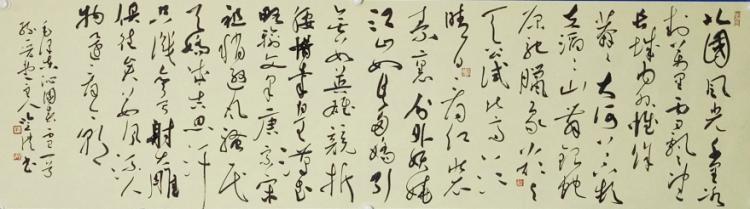 北國风光千里冰
封万里雪飘望
长城内外惟馀
莽莽大河上下顿
失滔滔山舞银蛇
原驰臘象欲与
天公试比高须
晴日看红装
素裹分外妖娆
江山如此多娇引
无数英雄竞折
腰惜秦皇汉武
略输文采唐宗宋
祖稍逊风骚一代
天骄成吉思汗
只识弯弓射大雕
俱往矣数风流人
物还看今朝
毛泽东沁园春雪一首
主人 书